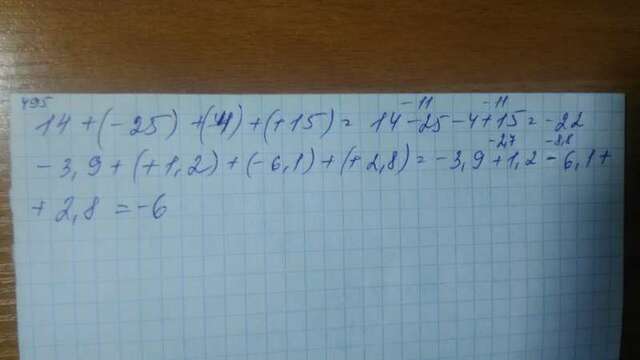 495
-11 -11
14 + (-25) + (-4) + (+15) = 14 - 25 - 4 + 15 = -22
-2,7 -8,8
-3,9 + (+1,2) + (-6,1) + (+2,8) = -3,9 + 1,2 - 6,1 +
+ 2,8 = -6